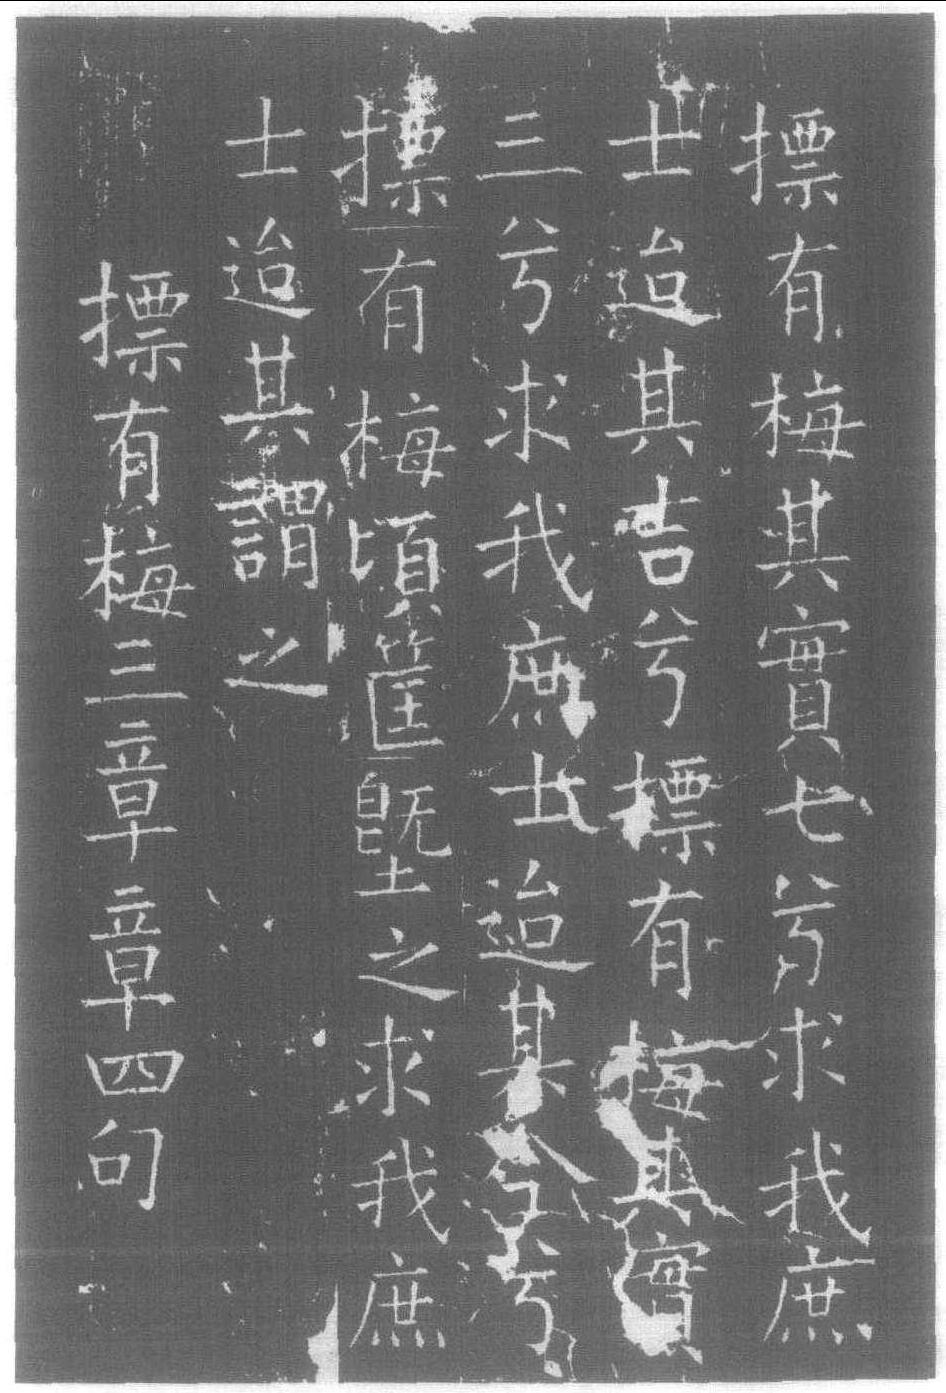 摽有梅其實七兮求我庶
士迨其吉兮摽有梅其實
三兮求我庶士迨其今兮
摽有梅頃筐塈之求我庶
士迨其謂之
摽有梅三章章四句